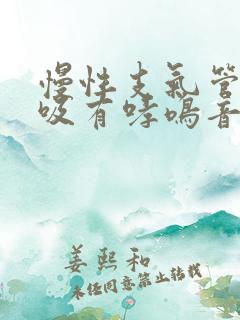 慢性支氣管
吸有哮鳴音
姜熙和
未经同意禁止转载